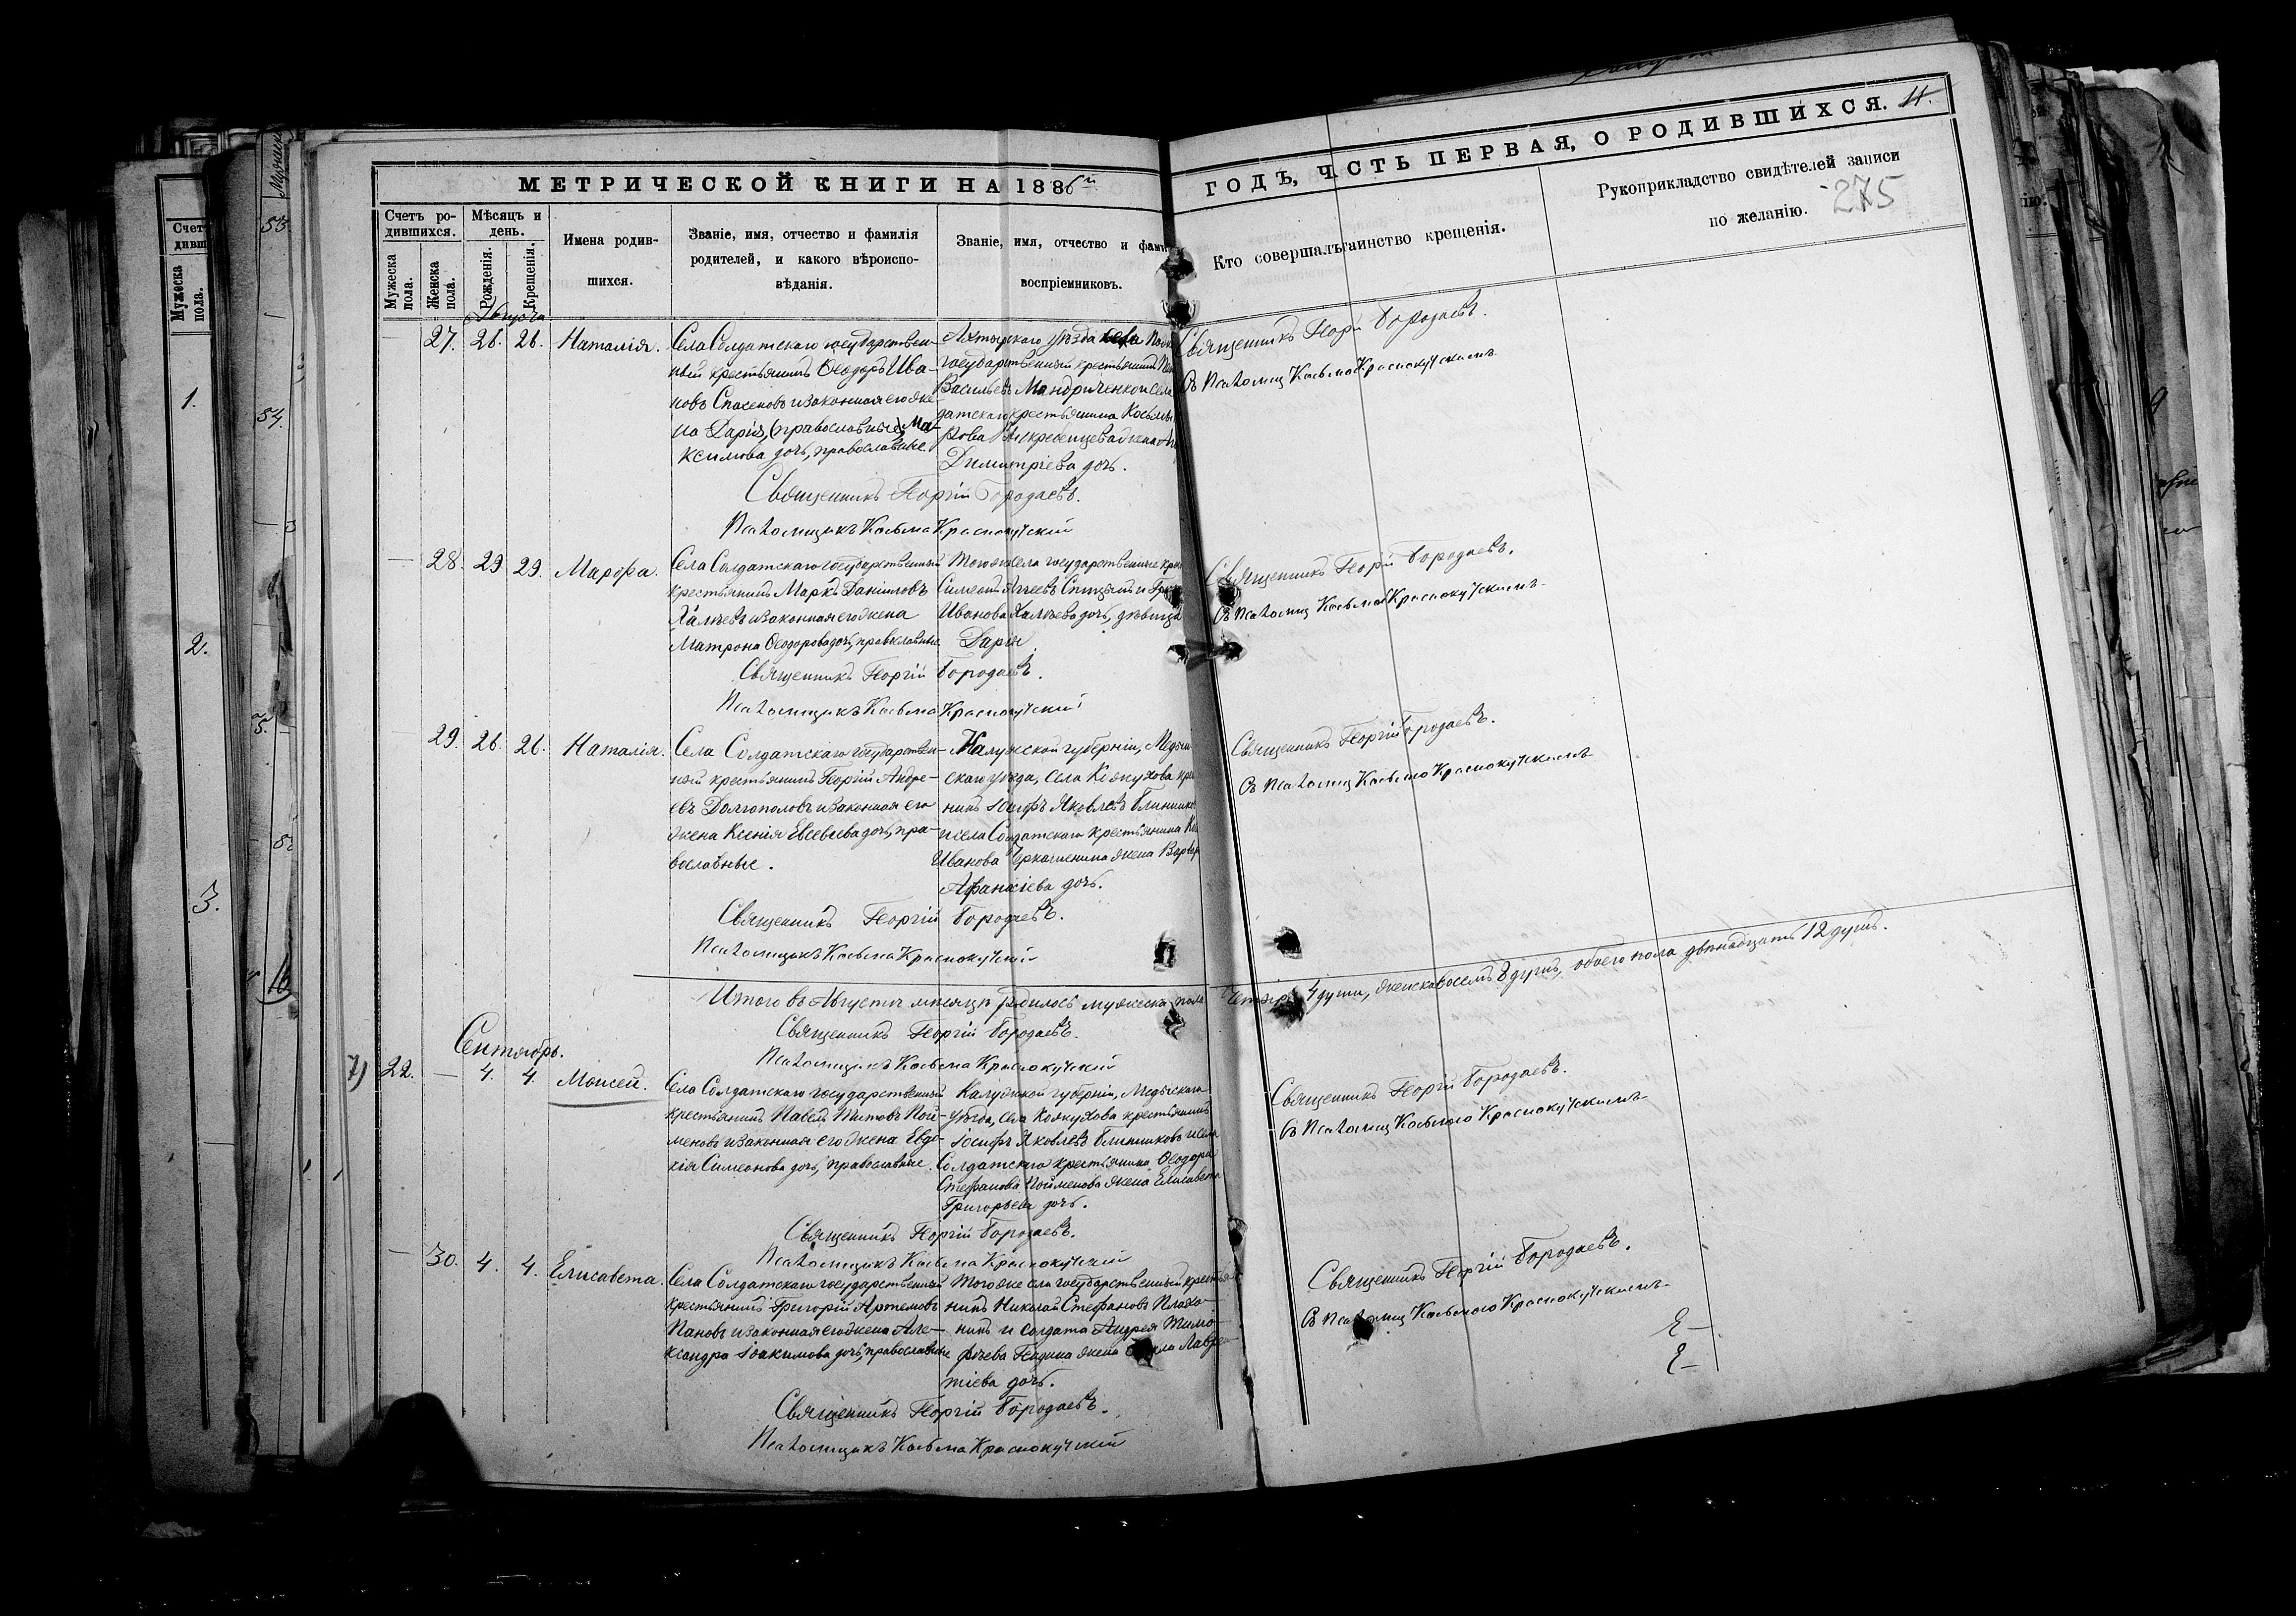 МЕТРИЧЕСКОЙ КНИГИ НА 1886й
ГОДЪ, ЧСТЬ ПЕРВАЯ, О РОДИВШИХСЯ. 11.
275
Счетъ ро-
дившихся.
Мужеска
пола.
Женска
пола.
Мѣсяцъ и
день.
Рожденія.
Крещенія.
Имена родив-
шихся.
Званіе, имя, отчество и фамилія
родителей, и какого вѣроиспо-
вѣданія.
Званіе, имя, отчество и фами
воспріемниковъ.
Кто совершалъ таинство крещенія.
Рукоприкладство свидѣтелей записи
по желанію.
Августа
— 27. 26. 26. Наталія.
Села Солдатскаго государствен-
ный крестьянинъ Ѳеодоръ Ива-
новъ и законная его же-
на Дарія, (православные) Ма-
ксимова дочь, православные.
Ахтырскаго уѣзда села
государственный крестьянинъ
Васильевъ Мандриченко и села
датскаго крестьянина Косьмы
жена
Димитріева дочь.
Священникъ Георгій Бородаевъ.
Псаломщикъ Косьма Краснокутскій
Священникъ Георгій Бородаевъ.
Съ псаломщ Косьмою Краснокутскимъ
— 28. 29 29. Марѳа.
Села Солдатскаго государственный
крестьянинъ Маркъ Даніиловъ
и законная его жена
Матрона Ѳеодорова дочь, православные.
Того же села государственные кре
Симеонъ и
Иванова дочь, дѣвица
Дарія.
Священникъ Георгій Бородаевъ.
Псаломщикъ Косьма Краснокутскій
Священникъ Георгій Бородаевъ.
Съ псаломщ Косьмою Краснокутскимъ
29. 26. 26. Наталія.
Села Солдатскаго государствен-
ный крестьянинъ Георгій Андре-
евъ Долгополовъ и законная его
жена Ксенія Евсевьева дочь, пра-
вославные.
Калужской губерніи, Медын
скаго уѣзда, села Кожухова кре
нинъ Іосифъ Яковлевъ Блинников
и села Солдатскаго крестьянина
Иванова жена Варвар
Афанасіева дочь.
Священникъ Георгій Бородаевъ.
Псаломщикъ Косьма Краснокутскій
Священникъ Георгій Бородаевъ.
Съ псаломщ Косьмою Краснокутскимъ
Итого въ Августѣ мѣсяцѣ родилось мужеска пола четыре 4 души, женска восемь 8 душъ, обоего пола двѣнадцать 12 душъ.
Священникъ Георгій Бородаевъ.
Псаломщикъ Косьма Краснокутскій
Сентябрь.
7) 22. — 4. 4. Моисей.
Села Солдатскаго государственный
крестьянинъ Павелъ Титовъ Пой-
меновъ и законная его жена Евдо-
кія Симеонова дочь, православные.
Калужской губерніи, Медынскаго
уѣзда, села Кожухова крестьянинъ
Іосифъ Яковлевъ Блинниковъ и села
Солдатскаго крестьянина Ѳеодора
Стефанова Пойменова жена Елисавета
Григорьева дочь.
Священникъ Георгій Бородаевъ.
Псаломщикъ Косьма Краснокутскій
Священникъ Георгій Бородаевъ.
Съ псаломщ Косьмою Краснокутскимъ
— 30. 4. 4. Елисавета.
Села Солдатскаго государственный
крестьянинъ Григорій Артемовъ
Пановъ и законная его жена Але-
ксандра Іоакимова дочь, православные
Того же села государственный крестья-
нинъ Николай Стефановъ Плохо-
нинъ и солдата Андрея Тимо-
фѣева жена Лаврен-
тіева дочь.
Священникъ Георгій Бородаевъ.
Псаломщикъ Косьма Краснокутскій
Священникъ Георгій Бородаевъ.
Съ псаломщ Косьмою Краснокутскимъ
Счет
дивш
Мужеска
пола.
1.
2.
3.
53
54.